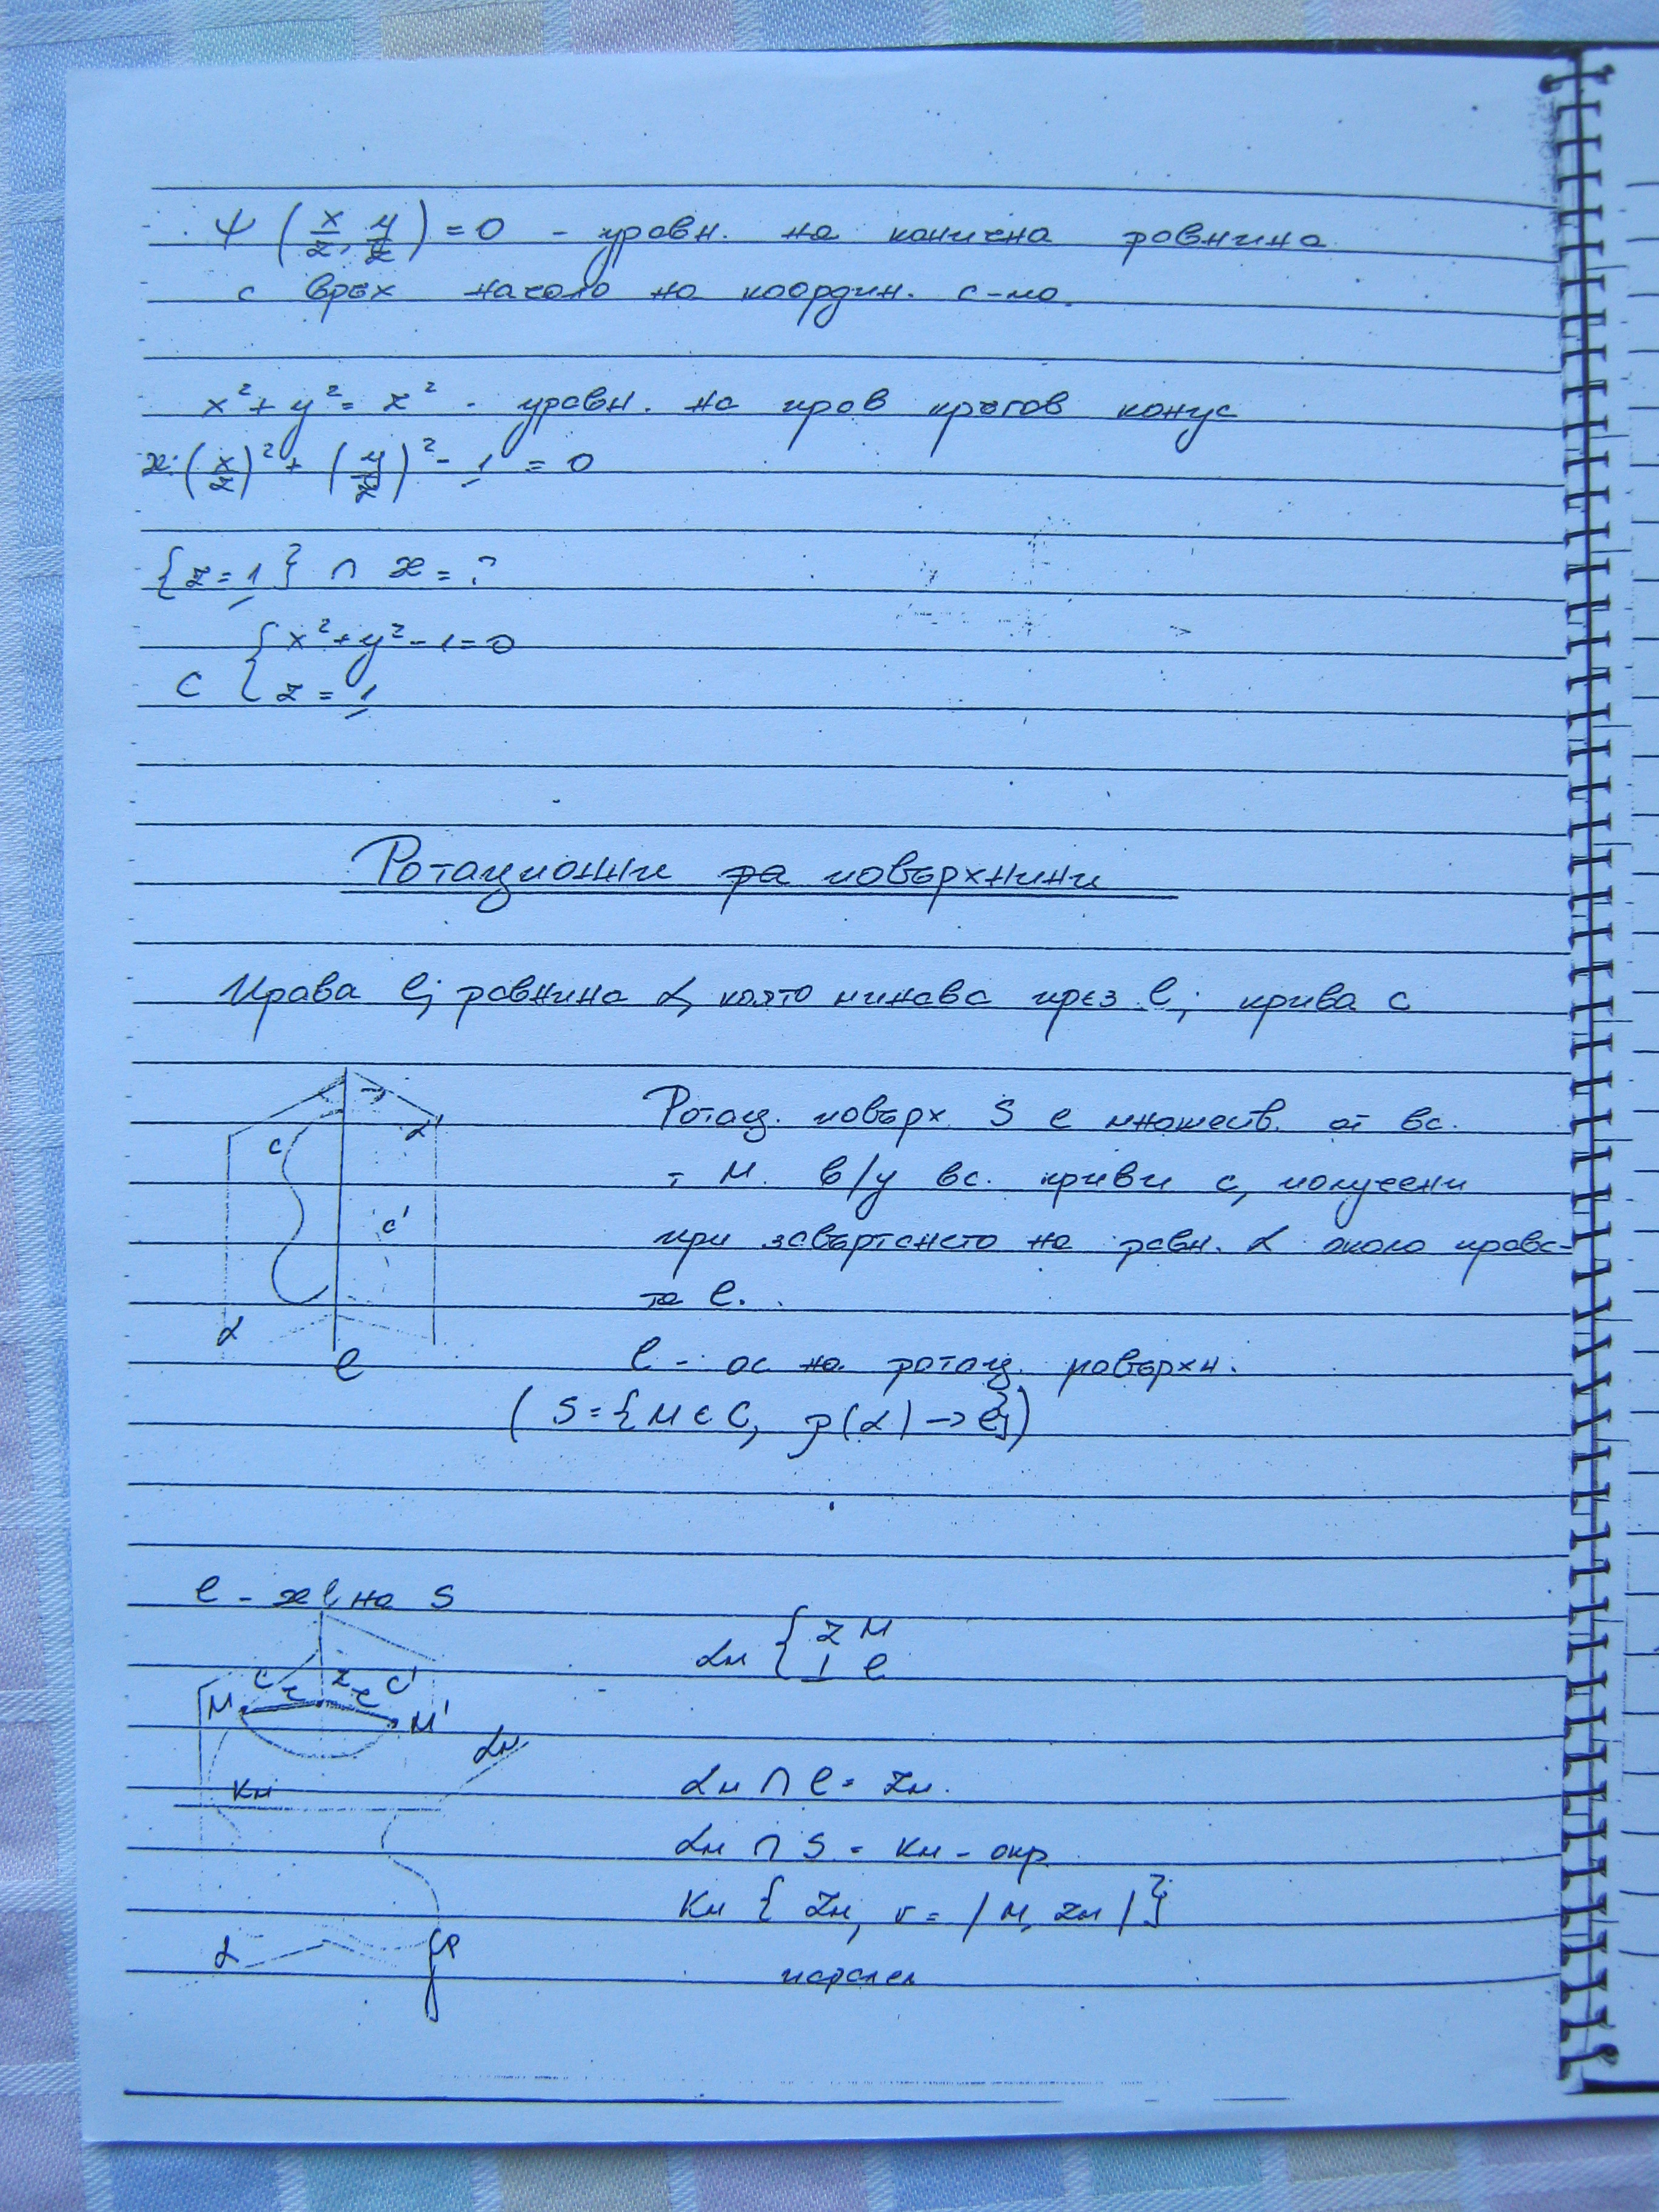 Ψ (x/z, y/z) = 0 - уравн. на конична равнина
с връх начало на координ. с-ма.
x² + y² = z² - уравн. на прав кръгов конус
ж: (x/z)² + (y/z)² - 1 = 0
{z = 1} ∩ ж = ?
C { x² + y² - 1 = 0
z = 1
Ротационни повърхнини
Права l; равнина α, която минава през l; крива c
c α'
c'
α
l
Ротац. повърх S е множеств. от вс.
т M. в/у вс. криви c, получени
при завъртането на равн. α около права-
та l.
l - ос на ротац. повърхн.
(S = {M ∈ C, ρ(α) → l})
l - на S
M c r z r c' M'
αм
Kм
α
αм { Z M
⊥ l
αм ∩ l = Zм.
αм ∩ S = Kм - окр.
Kм { Zм, r = |M, Zм| }
паралел